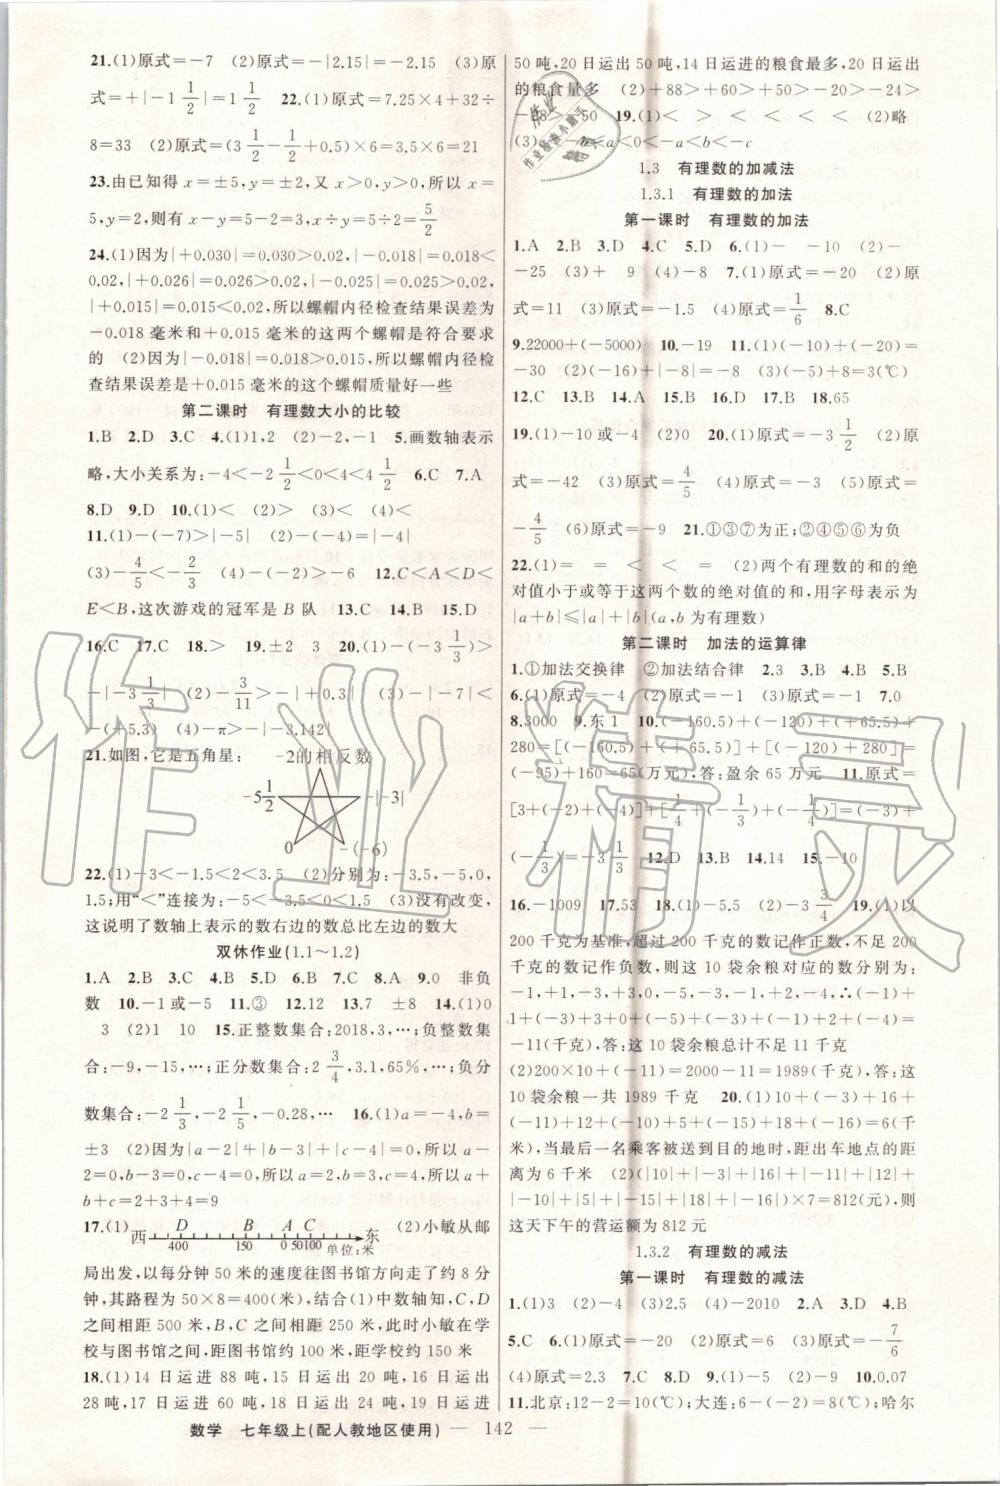 21.(1)原式=-7 (2)原式=-|2.15|=-2.15 (3)原
式=+|-1 1/2|=1 1/2 22.(1)原式=7.25×4+32÷
8=33 (2)原式=(3 1/2-1/2+0.5)×6=3.5×6=21
23.由已知得x=±5,y=±2,又x>0,y>0,所以x=
5,y=2,则有x-y=5-2=3,x÷y=5÷2=5/2
24.(1)因为|+0.030|=0.030>0.02,|-0.018|=0.018<
0.02,|+0.026|=0.026>0.02,|-0.025|=0.025>0.02,
|+0.015|=0.015<0.02,所以螺帽内径检查结果误差为
-0.018毫米和+0.015毫米的这两个螺帽是符合要求
的 (2)因为|-0.018|=0.018>0.015,所以螺帽内径检
查结果误差是+0.015毫米的这个螺帽质量好一些
第二课时 有理数大小的比较
1.B 2.D 3.C 4.(1)1,2 (2)-2,-1 5.画数轴表示
略,大小关系为:-4<-2 1/2<0<4<4 1/2 6.C 7.A
8.D 9.D 10.(1)< (2)> (3)< (4)<
11.(1)-(-7)>|-5| (2)-(-4)=|-4|
(3)-4/5<-2/3 (4)-(-2)>-6 12.C<A<D<
E<B,这次游戏的冠军是B队 13.C 14.B 15.D
16.C 17.C 18.> 19.±2 3 20.(1)-(-3 1/3)>
-|-3 1/3| (2)-3/11>-|+0.3| (3)-|-7|<
-(+5.3) (4)-π>-|-3.142|
21.如图,它是五角星:
-2的相反数
-5 1/2 -|-3|
0 -(-6)
22.(1)-3<-1.5<2<3.5 (2)分别为:-3.5,-5,0,
1.5;用“<”连接为:-5<-3.5<0<1.5 (3)没有改变,
这说明了数轴上表示的数右边的数总比左边的数大
双休作业(1.1~1.2)
1.A 2.B 3.C 4.B 5.D 6.B 7.C 8.A 9.0 非负
数 10.-1或-5 11.③ 12.12 13.7 ±8 14.(1)0
3 (2)1 10 15.正整数集合:2018,3,…;负整数集
合:-9,-15,…;正分数集合:2 3/4,3.1,65%,…;负分
数集合:-2 1/3,-2 1/5,-0.28,… 16.(1)a=-4,b=
±3 (2)因为|a-2|+|b-3|+|c-4|=0,所以a-
2=0,b-3=0,c-4=0,所以a=2,b=3,c=4,所以a+
b+c=2+3+4=9
17.(1) 西 D B A C 东 (2)小敏从邮
400 150 0 50100 单位:米
局出发,以每分钟50米的速度往图书馆方向走了约8分
钟,其路程为50×8=400(米),结合(1)中数轴知,C,D
之间相距500米,B,C之间相距250米,此时小敏在学
校与图书馆之间,距图书馆约100米,距学校约150米
18.(1)14日运进88吨,15日运出20吨,16日运出
28吨,17日运进60吨,18日运出24吨,19日运进
50吨,20日运出50吨,14日运进的粮食最多,20日运出
的粮食最多 (2)+88>+60>+50>-20>-24>
-28>-50 19.(1)< > < < < < (2)略
(3)-c<a<0<-a<b<-c
1.3 有理数的加减法
1.3.1 有理数的加法
第一课时 有理数的加法
1.A 2.B 3.D 4.C 5.D 6.(1)- -10 (2)-
-25 (3)+ 9 (4)-8 7.(1)原式=-20 (2)原
式=11 (3)原式=-1.5 (4)原式=1/6 8.C
9.22000+(-5000) 10.-19 11.(1)(-10)+(-20)=
-30 (2)(-16)+|-8|=-8 (3)(-5)+8=3(℃)
12.C 13.B 14.A 15.B 16.D 17.B 18.65
19.(1)-10或-4 (2)0 20.(1)原式=-3 1/2 (2)原
式=-42 (3)原式=4/5 (4)原式=-3 (5)原式=
-4/5 (6)原式=-9 21.①③⑦为正;②④⑤⑥为负
22.(1)= = < < = (2)两个有理数的和的绝
对值小于或等于这两个数的绝对值的和,用字母表示为
|a+b|≤|a|+|b|(a,b为有理数)
第二课时 加法的运算律
1.①加法交换律 ②加法结合律 2.3 3.B 4.B 5.B
6.(1)原式=-4 (2)原式=-1 (3)原式=-1 7.0
8.3000 9.东 1 10.(-160.5)+(-120)+(+65.5)+
280=[(-160.5)+(+65.5)]+[(-120)+280]=
(-95)+160=65(万元),答:盈余65万元 11.原式=
[3+(-2)+(-4)]+[1/4+(-1/3)+(-1/4)]=(-3)+
(-1/3)=-3 1/3 12.D 13.B 14.14 15.-10
16.-1009 17.53 18.(1)-5.5 (2)-3/4 19.(1)以
200千克为基准,超过200千克的数记作正数,不足200
千克的数记作负数,则这10袋余粮对应的数分别为:
-1,+1,-3,+3,0,-5,-3,-1,+2,-4,∴(-1)+
1+(-3)+3+0+(-5)+(-3)+(-1)+2+(-4)=
-11(千克),答:这10袋余粮总计不足11千克
(2)200×10+(-11)=2000-11=1989(千克),答:这
10袋余粮一共1989千克 20.(1)10+(-3)+16+
(-11)+12+(-10)+5+(-15)+18+(-16)=6(千
米),当最后一名乘客被送到目的地时,距出车地点的距
离为6千米 (2)(|10|+|-3|+|16|+|-11|+|12|+
|-10|+|5|+|-15|+|18|+|-16|)×7=812(元),则
这天下午的营运额为812元
1.3.2 有理数的减法
第一课时 有理数的减法
1.(1)3 (2)-4 (3)2.5 (4)-2010 2.A 3.D 4.B
5.C 6.(1)原式=-20 (2)原式=6 (3)原式=-7/6
(4)原式=2.3 7.C 8.C 9.(1)-5 (2)-9 10.0.07
11.北京:12-2=10(℃);大连:6-(-2)=8(℃);哈尔
数学 七年级上(配人教地区使用) — 142 —
作业精灵